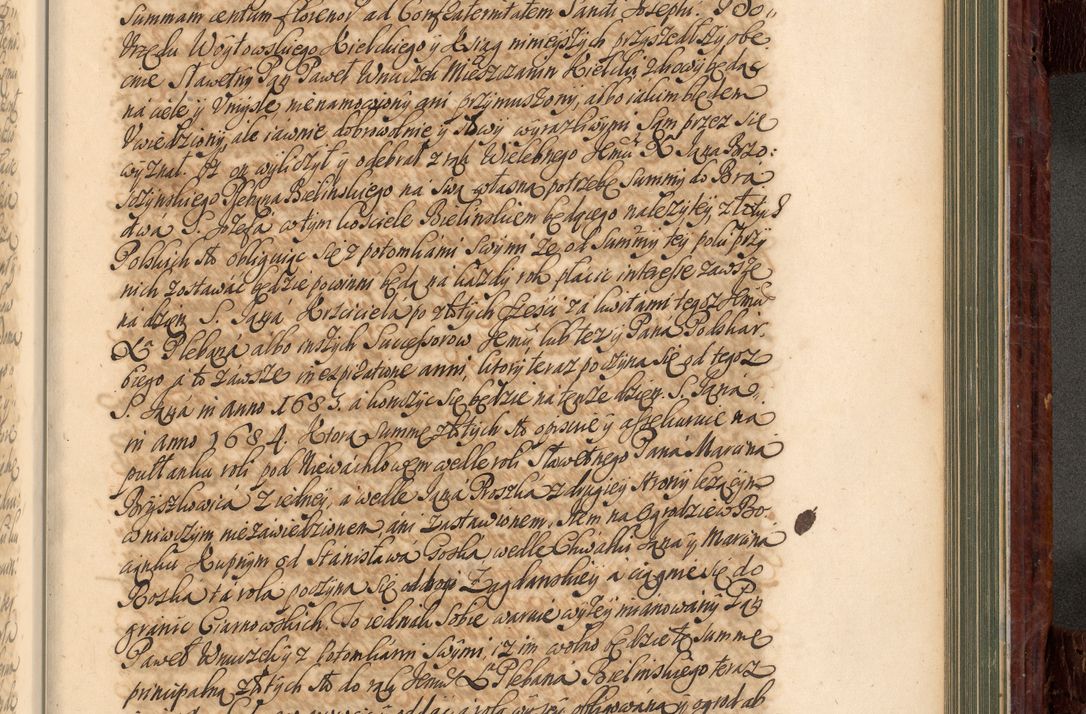 Summam centum florenor ad Confraternitatem Sancti Josephi. Do
Urzędu Woytowskiego Kielckiego y Xiąg ninieyszych przyszedszy obe
cnie Sławetny Pan Paweł Wnuczek Mieszczanin Kielcki, zdrowy będąc
na ciele y Umyśle nienamowiony ani przymuszony, albo iakim błędem
Uwiedziony, ale iawnie dobrowolnie y słowy wyrazliwymi sam przez się
wyznał. Iż on wyliczył y odebrał z rąk Wielebnego Jemu X Jana Brzo:
Plebana Bielinskiego na swą własną potrzebę summy do Bra
ctwa S. Jozefa w tym kosciele Bielinskiem będącego należytey złotych
Polskich sto obliguiąc się z potomkami swymi, że od summy tey poki przy
nich zostawać będzie powinni będą na każdy rok płacic interesse zawsze
na dzien S. Jana Krzciciela po złotych sześci za kwitami tegosz Jemu
X Plebana albo inszych Successorow Jemu lub też y Pana Podskar
biego a to zawsze in expiratione anni, ktory teraz poczyna się od tegosz
S. Jana in anno 1683. a konczyc się będzie na tenże dzien S. Jana
in anno 1684. Ktorą summę złotych sto opisuie y assekuruie na
pułłanku roli pod Niewachlowem wedle roli Sławetnego Pana Marcina
Bryszkowica z iedney, a wedle Jana Proszka z drugiey strony leżącym
w niwczym niezawiedzionem ani zastawionem, Item na Ogrodzie w Bo
Kupnym od Stanisława Goska wedle Chwałki Jana y Marcina
Koska ta rola poczyna się od drogi Zagdanskiey a ciągnie się do
granic Czarnowskich. To iednak sobie waruie wyżey mianowany Pan
Paweł Wnuczek y z potomkami swymi, iż im wolno będzie tę summę
principalną złotych sto do rąk Jemu X Plebana Bielinskiego teraz